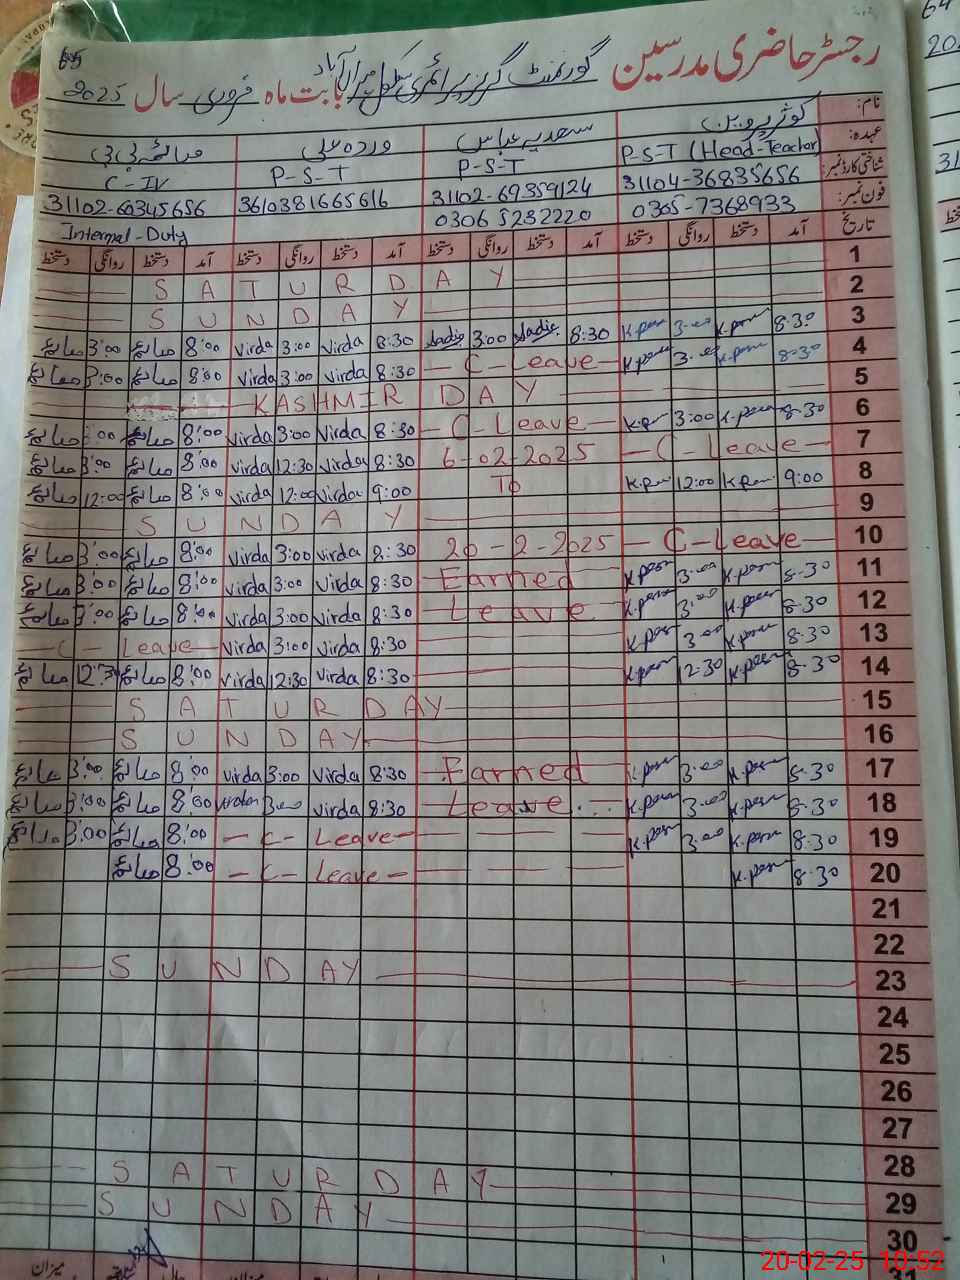 رجسٹر حاضری مدرسین گورنمنٹ گرلز پرائمری سکول میراں آباد بابت ماہ فروری سال 2025
نام: کوثر پروین سعدیہ عباس وردہ علی صائمہ بی بی
عہدہ: P-S-T (Head-Teacher) P-S-T P-S-T C-IV
شناختی کارڈ نمبر: 31104-36835656 31102-69359124 3610381665616 31102-60345656
فون نمبر: 0305-7368933 0306 5232220 Internal-Duty
تاریخ آمد دستخط روانگی دستخط آمد دستخط روانگی دستخط آمد دستخط روانگی دستخط آمد دستخط روانگی دستخط
1 SATURDAY
2 SUNDAY
3 8:30 K.per 3:00 K.per 8:30 Sadia 3:00 Sadia 8:30 Virda 3:00 Virda 8:00 صائمہ 3:00 صائمہ
4 8:30 K.per 3:00 K.per C-Leave 8:30 Virda 3:00 Virda 8:00 صائمہ 3:00 صائمہ
5 KASHMIR DAY
6 8-30 K.per 3:00 K.per C-Leave 8:30 Virda 3:00 Virda 8:00 صائمہ 3:00 صائمہ
7 C-Leave 6-02-2025 8:30 Virda 12:30 Virda 8:00 صائمہ 3:00 صائمہ
8 9:00 K.per 12:00 K.per To 9:00 Virda 12:00 Virda 8:00 صائمہ 12:00 صائمہ
9 SUNDAY
10 C-Leave 20-2-2025 8:30 Virda 3:00 Virda 8:00 صائمہ 3:00 صائمہ
11 8-30 K.per 3:00 K.per Earned 8:30 Virda 3:00 Virda 8:00 صائمہ 3:00 صائمہ
12 8-30 K.per 3:00 K.per Leave 8:30 Virda 3:00 Virda 8:00 صائمہ 3:00 صائمہ
13 8-30 K.per 3:00 K.per 8:30 Virda 3:00 Virda C-Leave
14 8-30 K.per 12:30 K.per 8:30 Virda 12:30 Virda 8:00 صائمہ 12:30 صائمہ
15 SATURDAY
16 SUNDAY
17 8-30 K.per 3:00 K.per Earned 8:30 Virda 3:00 Virda 8:00 صائمہ 3:00 صائمہ
18 8-30 K.per 3:00 K.per Leave 8:30 Virda 3:00 Virda 8:00 صائمہ 3:00 صائمہ
19 8-30 K.per 3:00 K.per C-Leave 8:00 صائمہ 3:00 صائمہ
20 8-30 K.per C-Leave 8:00 صائمہ
21
22
23 SUNDAY
24
25
26
27
28 SATURDAY
29 SUNDAY
30
میزان میزان
20-02-25 10:52